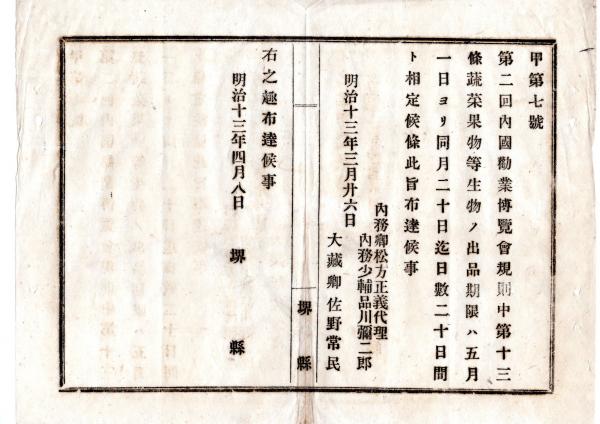 甲第七號
第二回內國勸業博覽會規則中第十三
條蔬菜果物等生物ノ出品期限ハ五月
一日ヨリ同月二十日迄日數二十日間
ト相定候條此旨布達候事
內務卿松方正義代理
內務少輔品川彌二郎
明治十三年三月廿六日
大藏卿佐野常民
堺縣
右之趣布達候事
明治十三年四月八日
堺縣